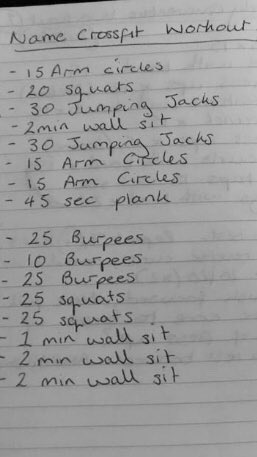 Name Crossfit Workout
- 15 Arm circles
- 20 squats
- 30 Jumping Jacks
- 2min wall sit
- 30 Jumping Jacks
- 15 Arm Circles
- 15 Arm Circles
- 45 sec plank
- 25 Burpees
- 10 Burpees
- 25 Burpees
- 25 squats
- 25 squats
- 1 min wall sit
- 2 min wall sit
- 2 min wall sit